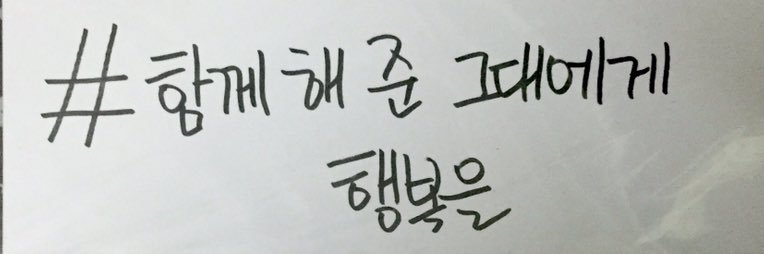 #함께 해 준 그대에게
행복을